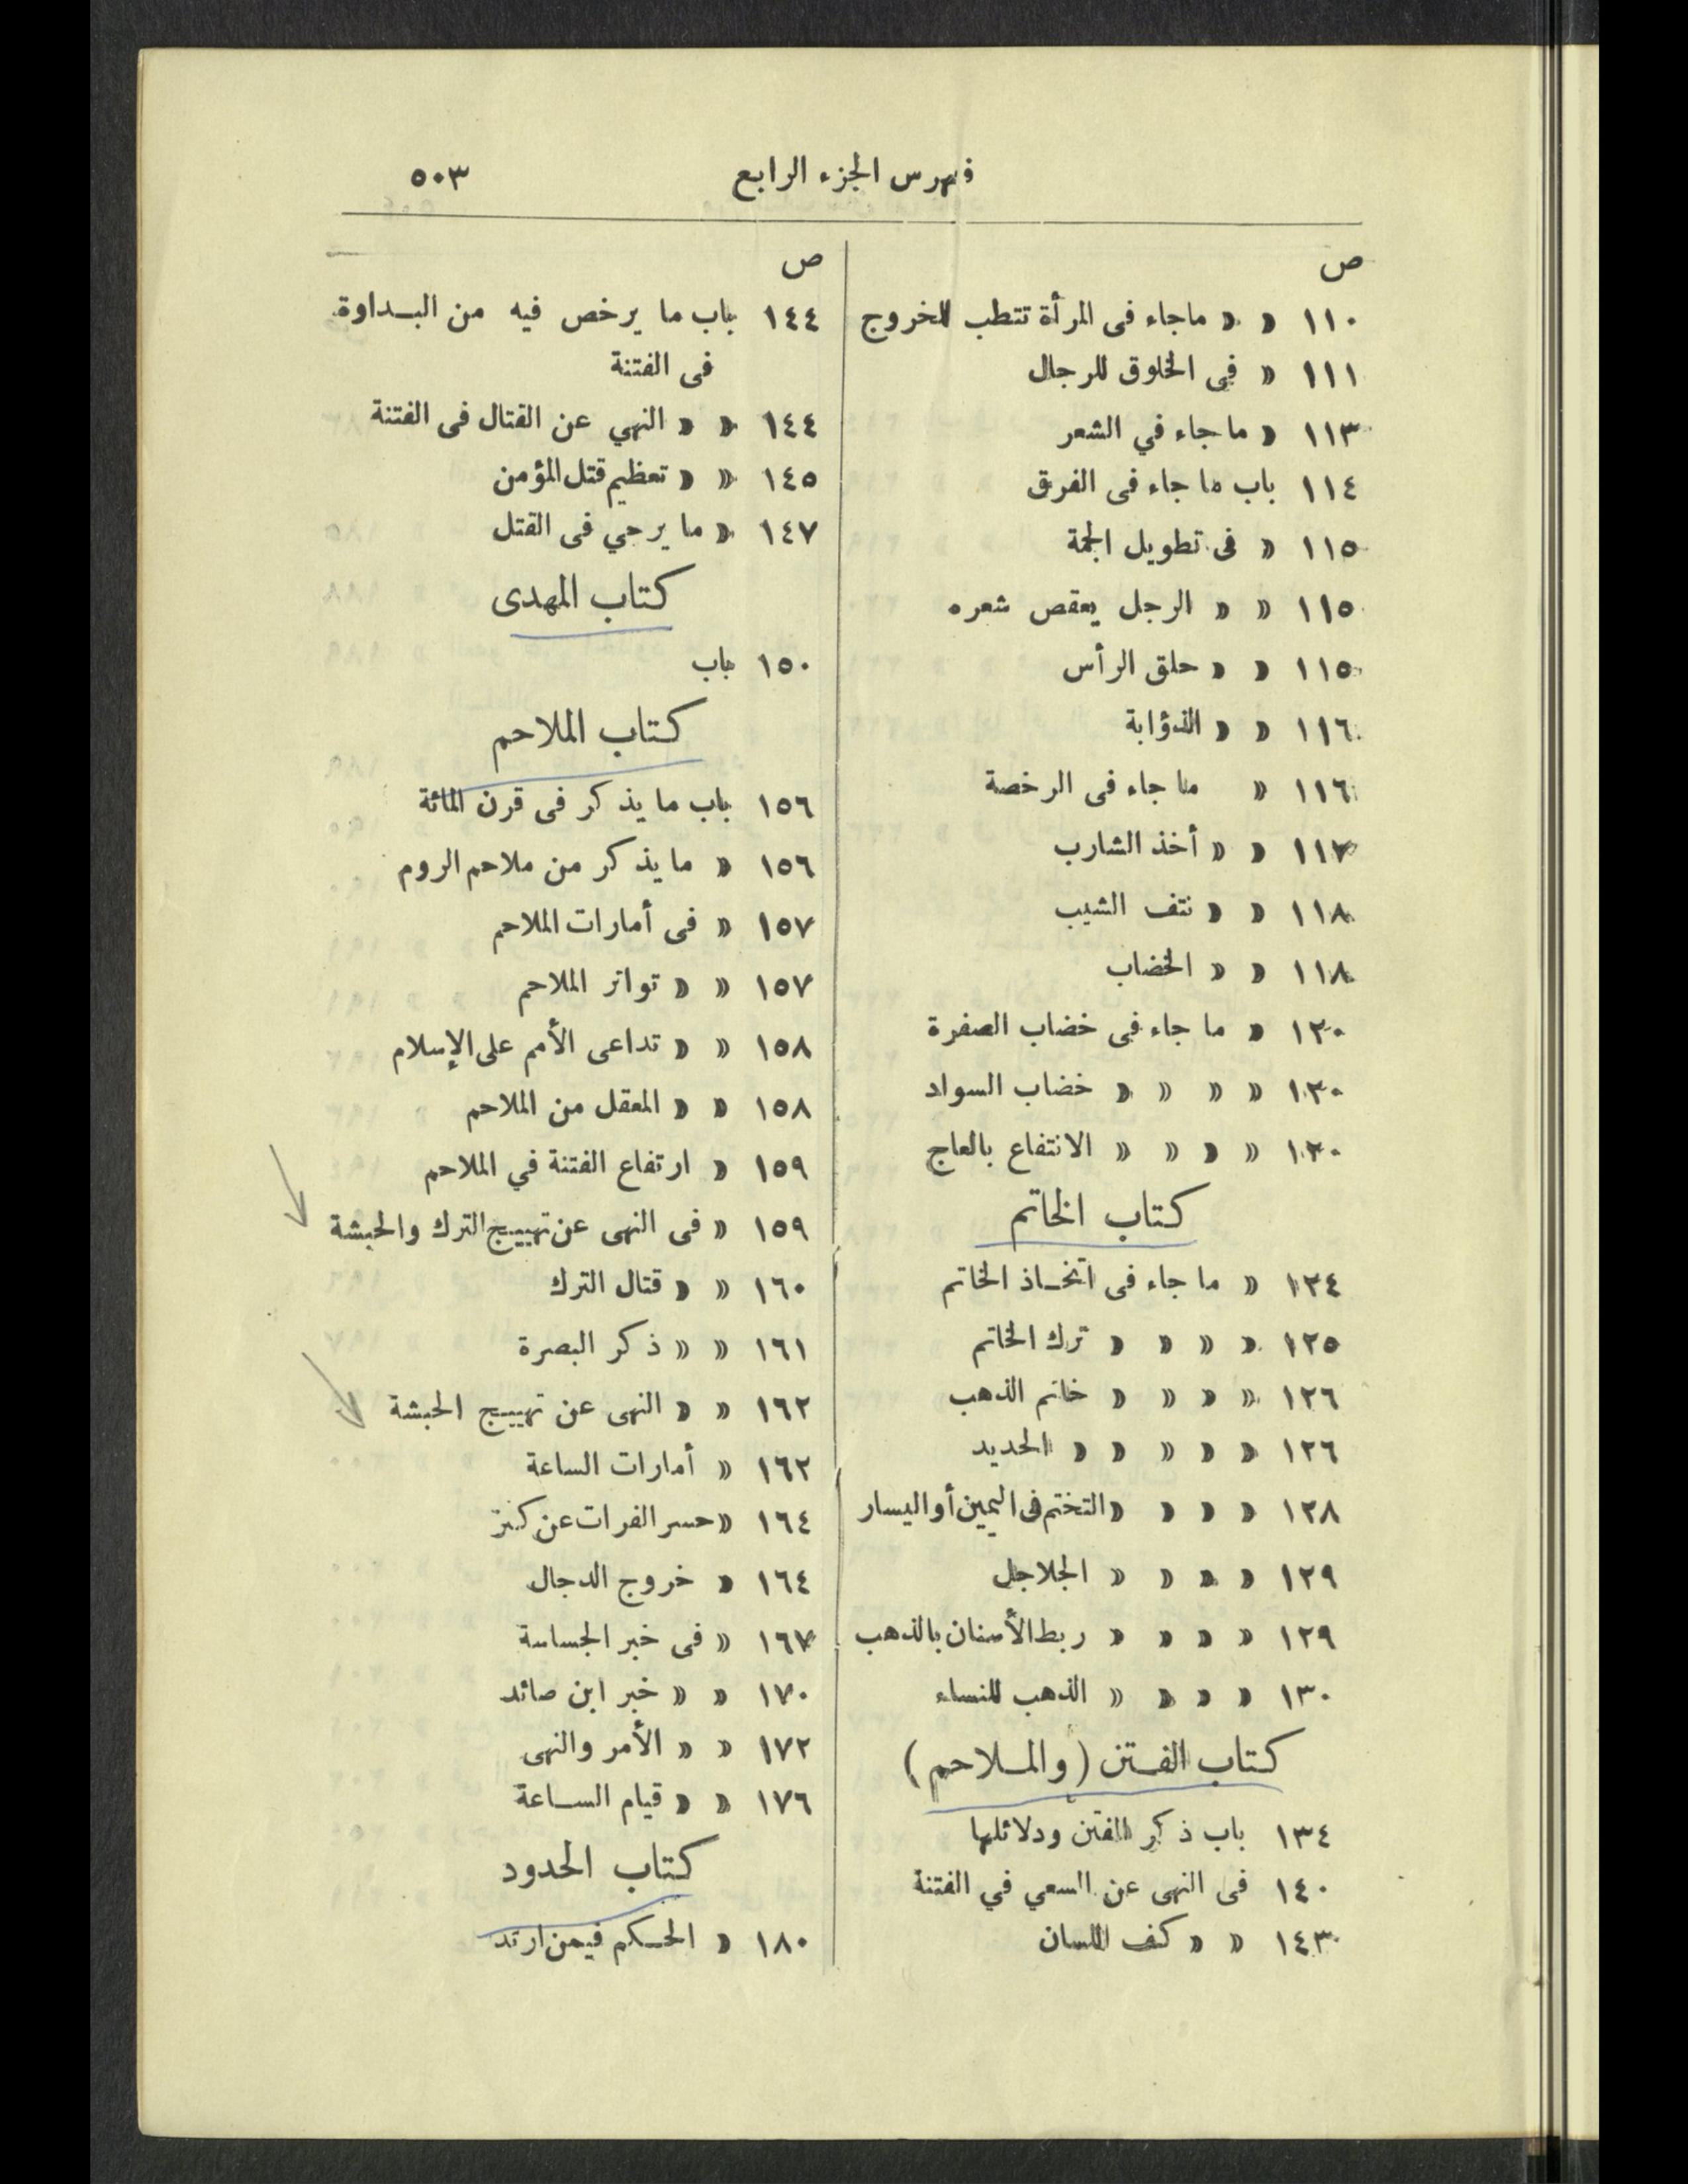 فهرس الجزء الرابع ٥٠٣
ص
١١٠ » » ما جاء فى المرأة تتطيب للخروج
١١١ » فى الخلوق للرجال
١١٣ » ما جاء في الشعر
١١٤ باب ما جاء فى الفرق
١١٥ » فى تطويل الجمة
١١٥ » » الرجل يعقص شعره
١١٥ » » حلق الرأس
١١٦ » » الذؤابة
١١٦ » ما جاء فى الرخصة
١١٧ » » أخذ الشارب
١١٨ » » نتف الشيب
١١٨ » » الخضاب
١٢٠ » ما جاء فى خضاب الصفرة
١٢٠ » » » » خضاب السواد
١٢٠ » » » » الانتفاع بالعاج
كتاب الخاتم
١٢٤ » ما جاء فى اتخاذ الخاتم
١٢٥ » » » » ترك الخاتم
١٢٦ » » » » خاتم الذهب
١٢٦ » » » » » الحديد
١٢٨ » » » » التختم فى اليمين أو اليسار
١٢٩ » » » » الجلاجل
١٢٩ » » » » ربط الأسنان بالذهب
١٣٠ » » » » الذهب للنساء
كتاب الفتن (والملاحم)
١٣٤ باب ذكر الفتن ودلائلها
١٤٠ فى النهى عن السعي في الفتنة
١٤٣ » » كف اللسان
ص
١٤٤ باب ما يرخص فيه من البداوة
فى الفتنة
١٤٤ » » النهي عن القتال فى الفتنة
١٤٥ » » تعظيم قتل المؤمن
١٤٧ » ما يرجي فى القتل
كتاب المهدى
١٥٠ باب
كتاب الملاحم
١٥٦ باب ما يذكر فى قرن المائة
١٥٦ » ما يذكر من ملاحم الروم
١٥٧ » فى أمارات الملاحم
١٥٧ » » تواتر الملاحم
١٥٨ » » تداعى الأمم على الإسلام
١٥٨ » » المعقل من الملاحم
١٥٩ » ارتفاع الفتنة في الملاحم
١٥٩ » فى النهى عن تهييج الترك والحبشة
١٦٠ » » قتال الترك
١٦١ » » ذكر البصرة
١٦٢ » » النهى عن تهييج الحبشة
١٦٢ » أمارات الساعة
١٦٤ » حسر الفرات عن كنز
١٦٤ » خروج الدجال
١٦٧ » فى خبر الجساسة
١٧٠ » » خبر ابن صائد
١٧٢ » » الأمر والنهى
١٧٦ » » قيام الساعة
كتاب الحدود
١٨٠ » الحكم فيمن ارتد